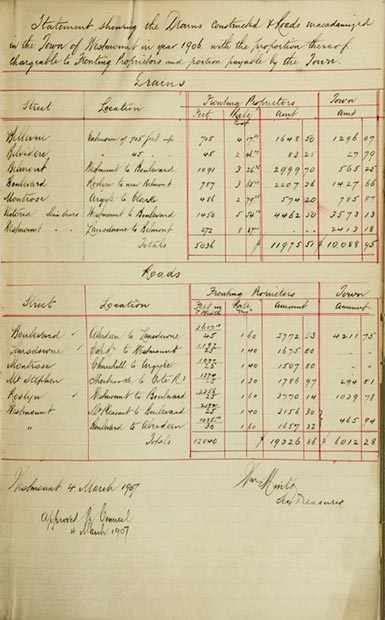 Statement showing the Drains constructed & Roads macadamized
in the Town of Westmount in year 1906 with the proportion thereof
chargeable to Fronting Proprietors and portion payable by the Town.
Drains
Street Location Fronting Proprietors Town
Feet Rate Amt Amt
Bellevue of 705 feet up 705 1648 50 1296 07
Belvedere " 45 " 45 83 21 27 79
Belmont Westmount to Boulevard 1091 2999 70 565 25
Boulevard Roslyn to new Belmont 757 2207 36 1427 66
Montrose Argyle to Clarke 574 20 785 87
Victoria Westmount to Boulevard 1456 4462 50 3573 13
Westmount Lansdowne to Belmont 572 2413 18
Totals 5036 $ 11975 51 $ 10088 95
Roads
Street Location Fronting Proprietors Town
Feet in Width Rate Amount Amount
Boulevard Aberdeen to Lansdowne 45 1 60 3772 53 4211 75
Lansdowne to Westmount 1 40 1675 80
Montrose Churchill to Argyle 1 40 1507 80
Mt Stephen Sherbrooke to 1 30 1786 97 294 01
Roslyn Westmount to Boulevard 1 60 3770 14 1039 78
Westmount Mt Pleasant to Boulevard 1 40 3156 30
" Boulevard to Aberdeen 30 1 60 1657 32 465 94
Totals 12040 $ 19326 86 $ 6012 28
Westmount 4 March 1907
Wm Minto
Sec Treasurer
Approved by Council
4 March 1907